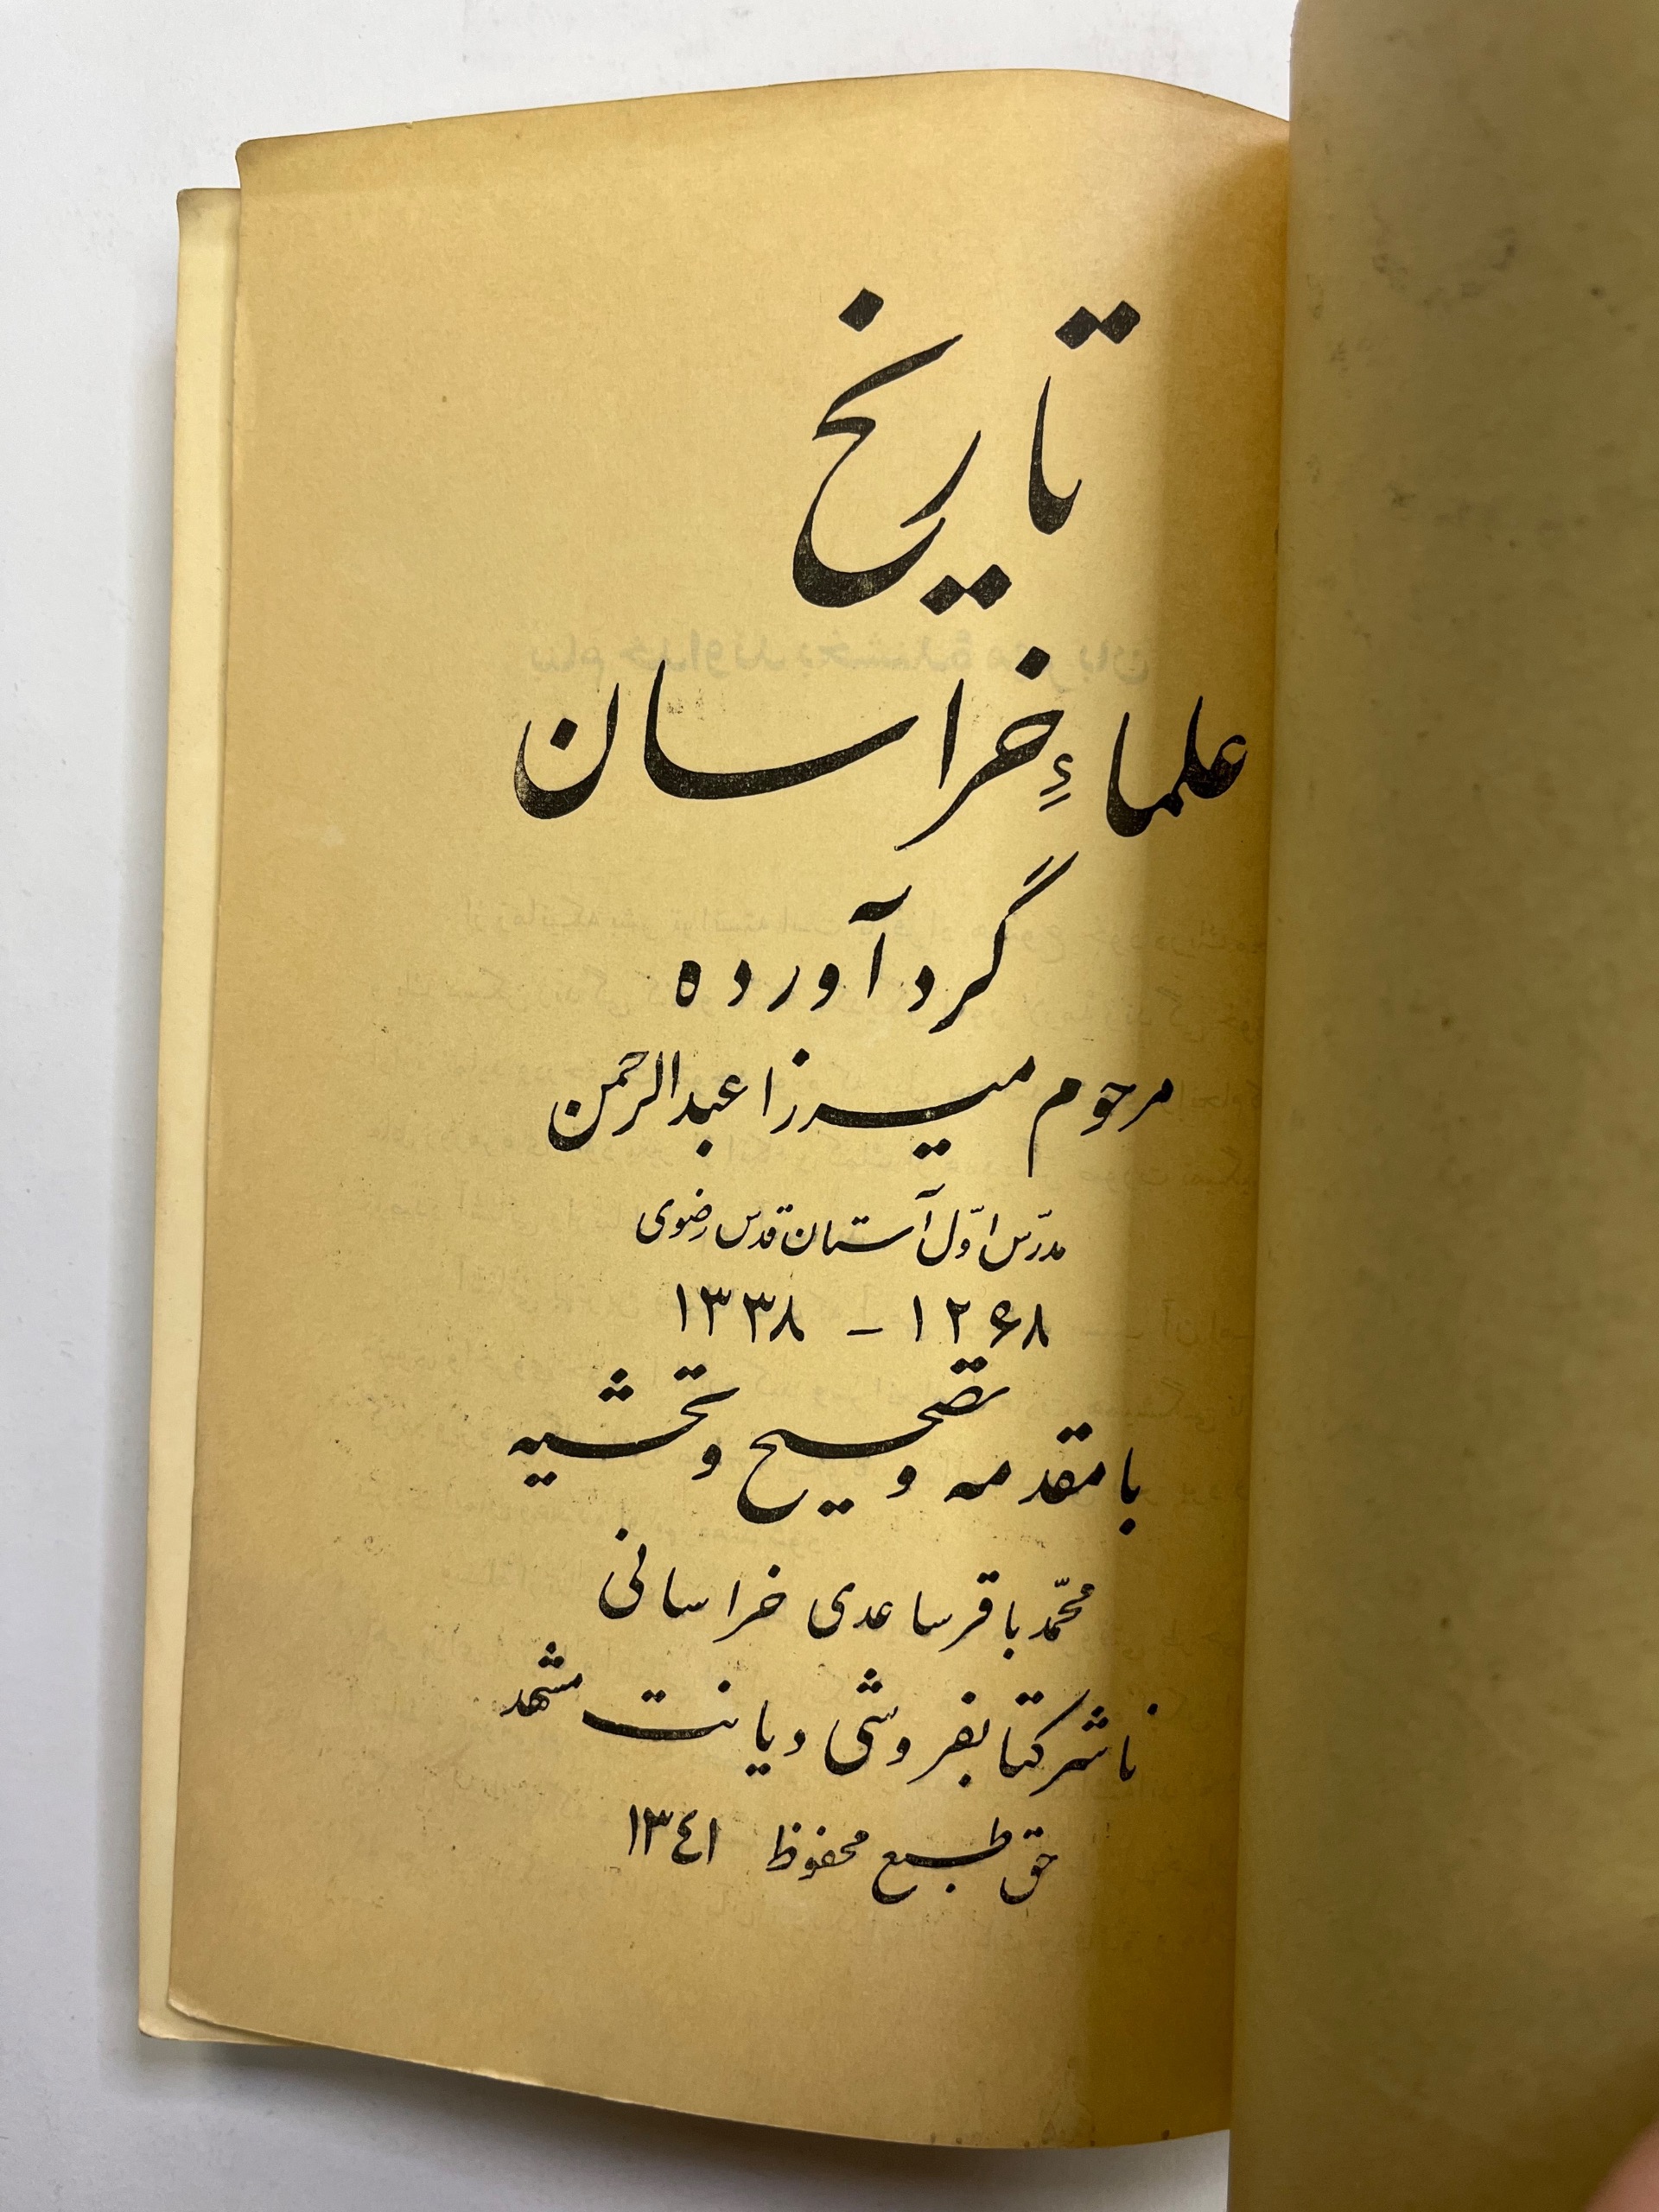 تاریخ
علماءِ خراسان
گردآورده
مرحوم میرزا عبدالرحمن
مدرّس اوّل آستان قدس رضوی
۱۲۶۸ - ۱۳۳۸
با مقدمه و تصحیح و تحشیه
محمّد باقر ساعدی خراسانی
ناشر کتابفروشی دیانت مشهد
حق طبع محفوظ ۱۳٤۱